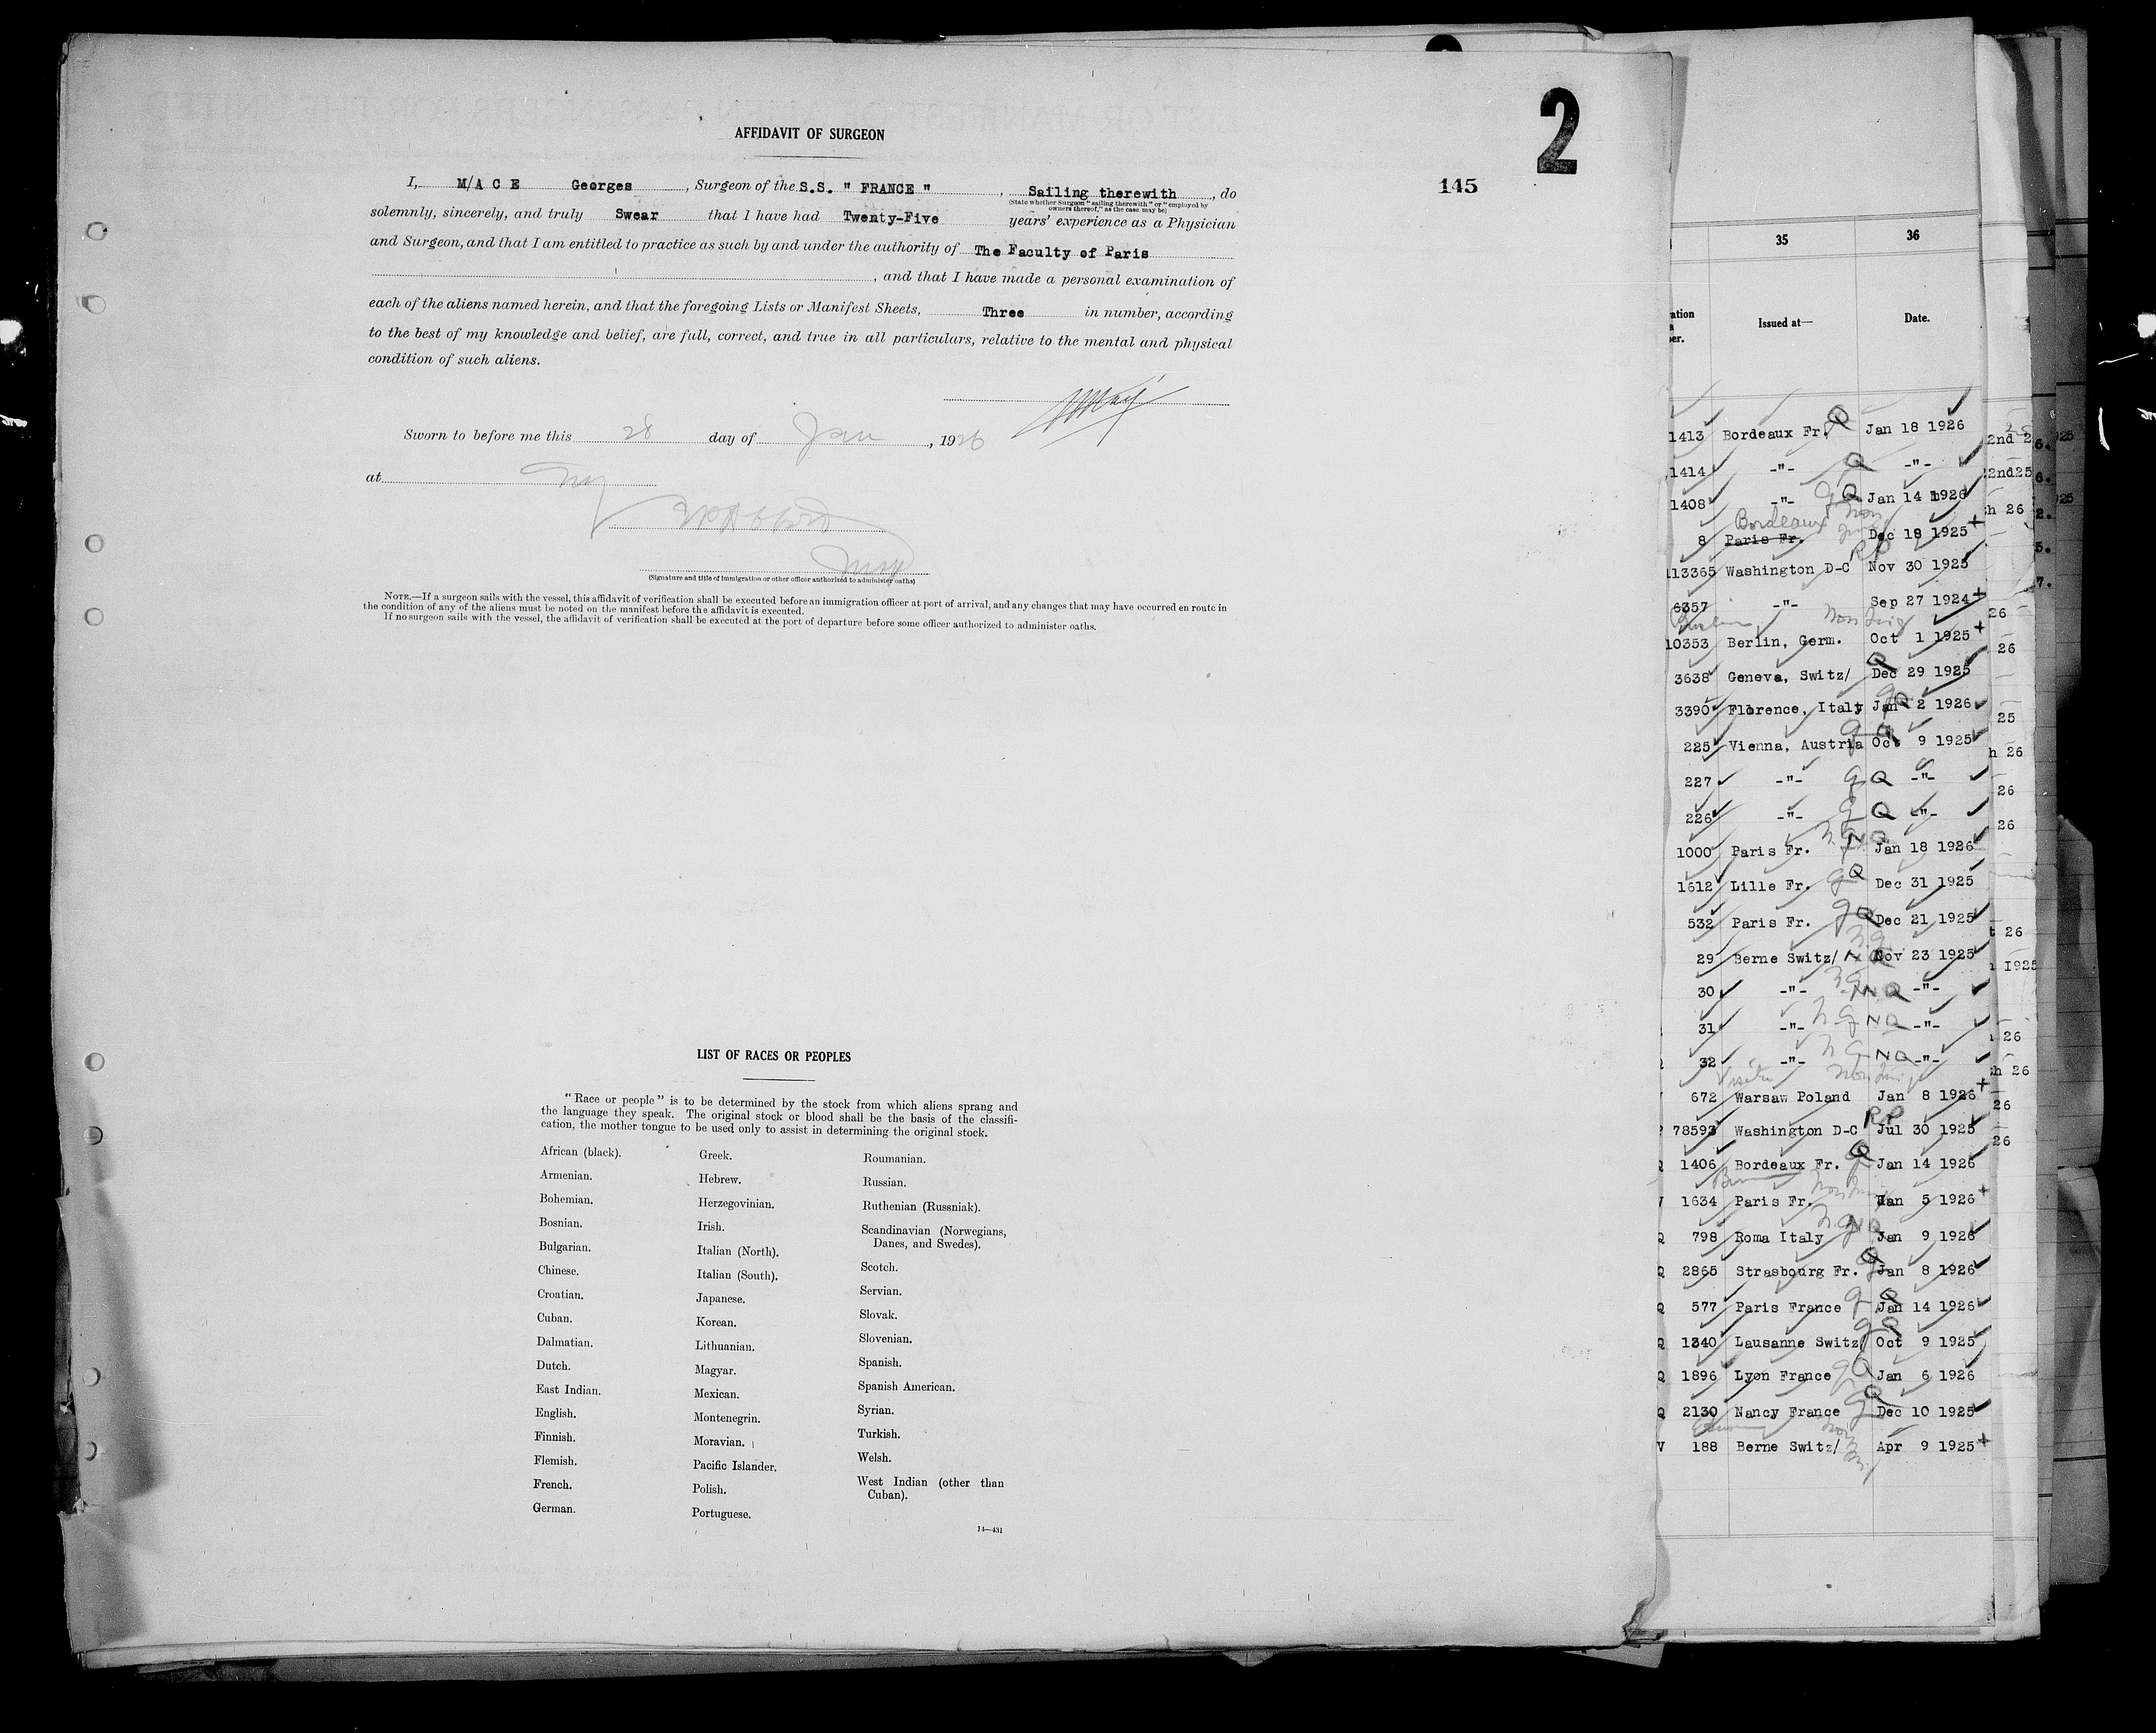 2
AFFIDAVIT OF SURGEON
145
I, M/A C E Georges, Surgeon of the S.S. " FRANCE ", Sailing therewith, do
(State whether Surgeon "sailing therewith" or "employed by
owners thereof," as the case may be)
solemnly, sincerely, and truly Swear that I have had Twenty-Five years' experience as a Physician
and Surgeon, and that I am entitled to practice as such by and under the authority of The Faculty of Paris
, and that I have made a personal examination of
each of the aliens named herein, and that the foregoing Lists or Manifest Sheets, Three in number, according
to the best of my knowledge and belief, are full, correct, and true in all particulars, relative to the mental and physical
condition of such aliens.
Sworn to before me this 28 day of Jan, 1926
at
(Signature and title of immigration or other officer authorized to administer oaths)
NOTE.—If a surgeon sails with the vessel, this affidavit of verification shall be executed before an immigration officer at port of arrival, and any changes that may have occurred en route in
the condition of any of the aliens must be noted on the manifest before the affidavit is executed.
If no surgeon sails with the vessel, the affidavit of verification shall be executed at the port of departure before some officer authorized to administer oaths.
LIST OF RACES OR PEOPLES
"Race or people" is to be determined by the stock from which aliens sprang and
the language they speak. The original stock or blood shall be the basis of the classifi-
cation, the mother tongue to be used only to assist in determining the original stock.
African (black).
Armenian.
Bohemian.
Bosnian.
Bulgarian.
Chinese.
Croatian.
Cuban.
Dalmatian.
Dutch.
East Indian.
English.
Finnish.
Flemish.
French.
German.
Greek.
Hebrew.
Herzegovinian.
Irish.
Italian (North).
Italian (South).
Japanese.
Korean.
Lithuanian.
Magyar.
Mexican.
Montenegrin.
Moravian.
Pacific Islander.
Polish.
Portuguese.
Roumanian.
Russian.
Ruthenian (Russniak).
Scandinavian (Norwegians,
Danes, and Swedes).
Scotch.
Servian.
Slovak.
Slovenian.
Spanish.
Spanish American.
Syrian.
Turkish.
Welsh.
West Indian (other than
Cuban).
14—431
35 36
Issued at— Date.
1413 Bordeaux Fr. Q Jan 18 1926
1414 -"- Q -"-
1408 -"- Q Jan 14 1926
Bordeaux
8 Paris Fr. Dec 18 1925
113365 Washington D-C Nov 30 1925
6357 -"- Sep 27 1924
10353 Berlin, Germ. Oct 1 1925
3638 Geneva, Switz/ Q Dec 29 1925
3390 Florence, Italy Jan 2 1926
225 Vienna, Austria Oct 9 1925
227 -"- Q -"-
226 -"- Q -"-
1000 Paris Fr. Jan 18 1926
1612 Lille Fr. Q Dec 31 1925
532 Paris Fr. Q Dec 21 1925
29 Berne Switz/ Nov 23 1925
30 -"- NQ -"-
31 -"- NQ -"-
32 -"- NQ -"-
672 Warsaw Poland Jan 8 1926
78593 Washington D-C RP Jul 30 1925
1406 Bordeaux Fr. Q Jan 14 1926
1634 Paris Fr. Jan 5 1926
798 Roma Italy Jan 9 1926
2865 Strasbourg Fr. Q Jan 8 1926
577 Paris France Q Jan 14 1926
1340 Lausanne Switz/ Q Oct 9 1925
1896 Lyon France Q Jan 6 1926
2130 Nancy France Q Dec 10 1925
188 Berne Switz/ Apr 9 1925